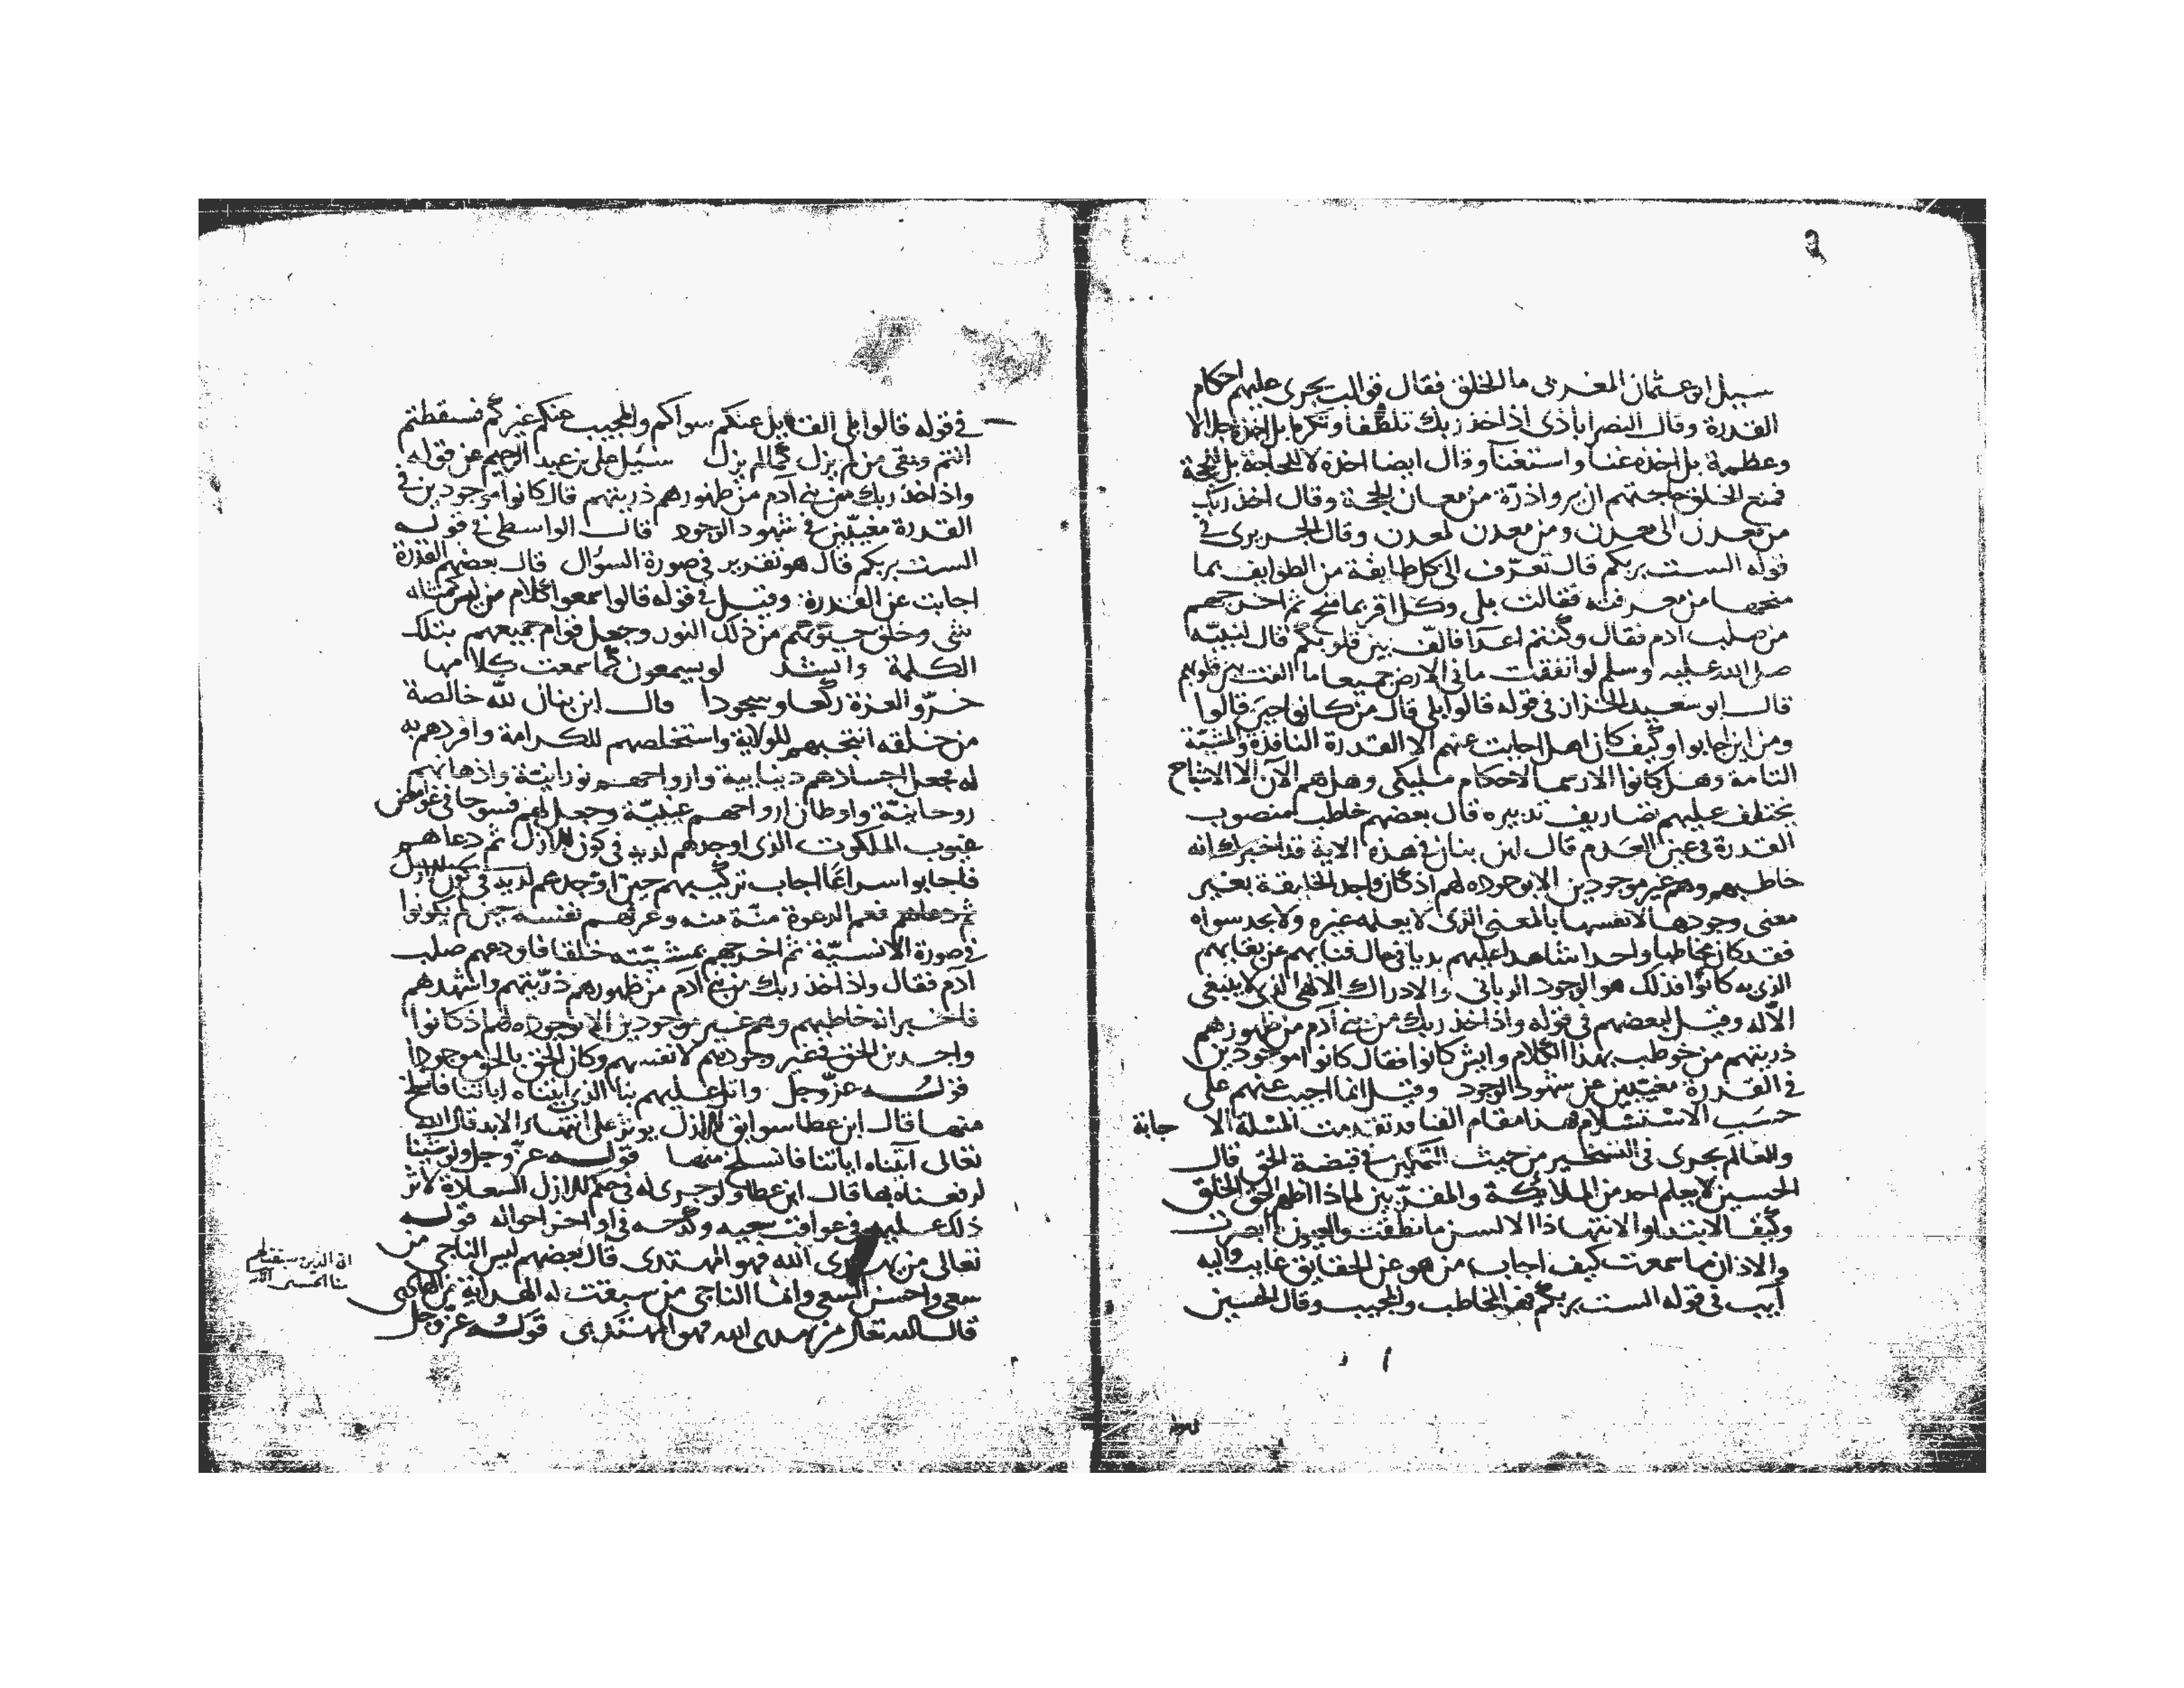 سيل ابو عثمان المغربى ما الخلق فقال قوالب يجرى عليهم احكام
القدرة وقال النصراباذى اذ اخذ ربك تلطفا وتكرما بل اخذه جلالا
وعظمة بل اخذه غنا واستغنآ وقال ايضا اخذه لا للحاجة بل للحجة
فمنع الخلق حاجتهم ان يروا ذرّة من معان الحجة وقال اخذ ربك
من معدن الى معدن ومن معدن لمعدن وقال الجريرى فى
قوله الست بربكم قال تعرّف الى كل طايفة من الطوايف بما
منحها من معرفته فقالت بلى وكل اقر بما منح ثم اخرجهم
من صلب ادم فقال وكنتم اعدا فالّف بين قلوبكم قال لنبيّه
صلى الله عليه وسلم لو انفقت ما فى الارض جميعا ما الفت بين قلوبهم
قال ابو سعيد الخزاز فى قوله قالوا بلى قال من كانوا حين قالوا
ومن اين اجابوا وكيف كان اصل اجابت عنهم الا القدرة النافذة والمشيّة
التامة وهل كانوا الا رسما لاحكام وهل هم الآن الا الاشباح
يختلف عليهم تضاريف تدبيره قال بعضهم خاطب منصوب
القدرة فى عين العدم قال ابن بنان فى هذه الاية قد اخبرك انه
خاطبهم وهم غير موجودين الا بوجوده لهم اذ كان واجد الخليقة بغير
معنى وجودها لانفسها بالمعنى الذى لا يعلمه غيره ولا يجد سواه
فقد كان مخاطبا واحدا شاهدا عليهم بديا فى حال فنايهم عن بقايهم
الذى به كانوا فذلك هو الوجود الربانى والادراك الالهى الذى لا ينبغى
الّا له وقيل لبعضهم فى قوله واذ اخذ ربك من بنى آدم من ظهورهم
ذريتهم من خوطب بهذا الكلام وايش كانوا فقال كانوا موجودين
فى القدرة مغيّبين عن شهود الوجود وقيل انما اجيب عنهم على
حسَبِ الاستسلام فهذا مقام الفنا قد تقدمت المسلة الا جابة
والعالم يجرى فى التسخير من حيث التمكين فى قبضة الحق قال
الحسين لا يعلم احد من الملايكة والمقرّبين لماذا اظهر الحق الخلق
وكيف الابتدا والانتها اذ الالسن ما نطقت والعيون ما ابصرت
والاذان ما سمعت كيف اجاب من هو عن الحقايق غايب واليه
آيب فى قوله الست بربكم فهو المخاطب والمجيب وقال الحسين
فى قوله قالوا بلى القايل عنكم سواكم والمجيب عنكم غيركم فسقطتم
انتم وبقى من لم يزل كما لم يزل سئيل على بن عبد الرحيم عن قوله
واذ اخذ ربك من بنى آدم من ظهورهم ذريتهم قال كانوا موجودين فى
القدرة مغيّبين فى شهود الوجود قال الواسطى فى قوله
الست بربكم قال هو تقرير فى صورة السؤال قال بعضهم القدرة
اجابت عن القدرة وقيل فى قوله قالوا سمعوا كلام من ليس كمثله
شى وخلق حيوتهم من ذلك النور وجعل قوام جميعهم بتلك
الكلمة وانشد لو يسمعون كما سمعت كلامها
خرّو العزة ركّعا وسجودا قال ابن بنان لله خالصة
من خلقه انتخبهم للولاية واستخلصهم للكرامة وافردهم به
له فجعل اجسادهم دنيايية وارواحهم نورانيّة واذهانهم
روحانيّة واوطان ارواحهم غيبيّة وجعل لهم فسوحا فى غوامض
غيوب الملكوت الذى اوجدهم لديه فى كون الازل ثم دعاهم
فاجابوا سراعًا اجاب تركيبهم حين اوجدهم لديه فى كون الازل
ثم دعاهم فعم الدعوة منّة منه وعرفهم نفسه حين لم يكونوا
فى صورة الانسيّة ثم اخرجهم بمشيّته خلقا فاودعهم صلب
آدم فقال واذ اخذ ربك من بنى آدم من ظهورهم ذرّيتهم واشهدهم
فاخبر انه خاطبهم وهم غير موجودين الا بوجوده لهم اذ كانوا
واجدين للحق فى غير وجودهم لانفسهم وكان الحق بالحق موجودا
قوله عزّ وجل واتل عليهم نبا الذى آتيناه اياتنا فانسلخ
منها قال ابن عطا سوابق الازل يوثر على انتهاء الابد قال الله
تعالى آتيناه اياتنا فانسلخ منها قوله عزّ وجل ولو شئنا
لرفعناه بها قال ابن عطا ولو جرى له فى حكم الازل السعادة لاثر
ذلك عليه فى عواقب سعيه وكدحه فى اواخر احواله قوله
تعالى من يهدى الله فهو المهتدى قال بعضهم ليس الناجى من
سعى واحسن السعى وانما الناجى من سبقت له الهداية من الهادى
قال الله تعالى من يهدى الله فهو المهتدى قوله عزّ وجل
ان الذين سبقت لهم
منا الحسنى الآية